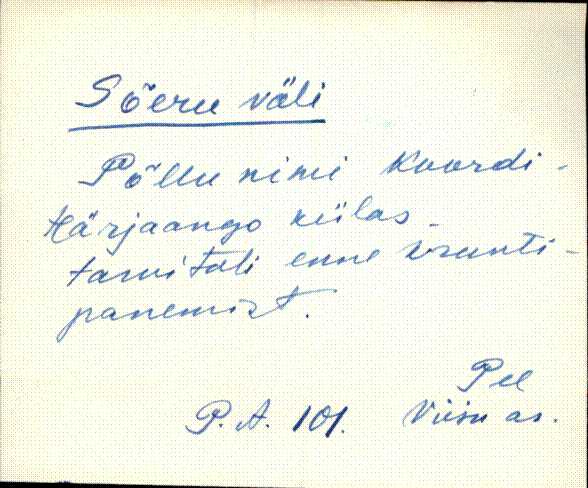 Sõeru väli
Põllu nimi Koordi-
Härjaango külas
tarvitati enne krunti-
panemist.
Pee
P. A. 101. Viisu as.